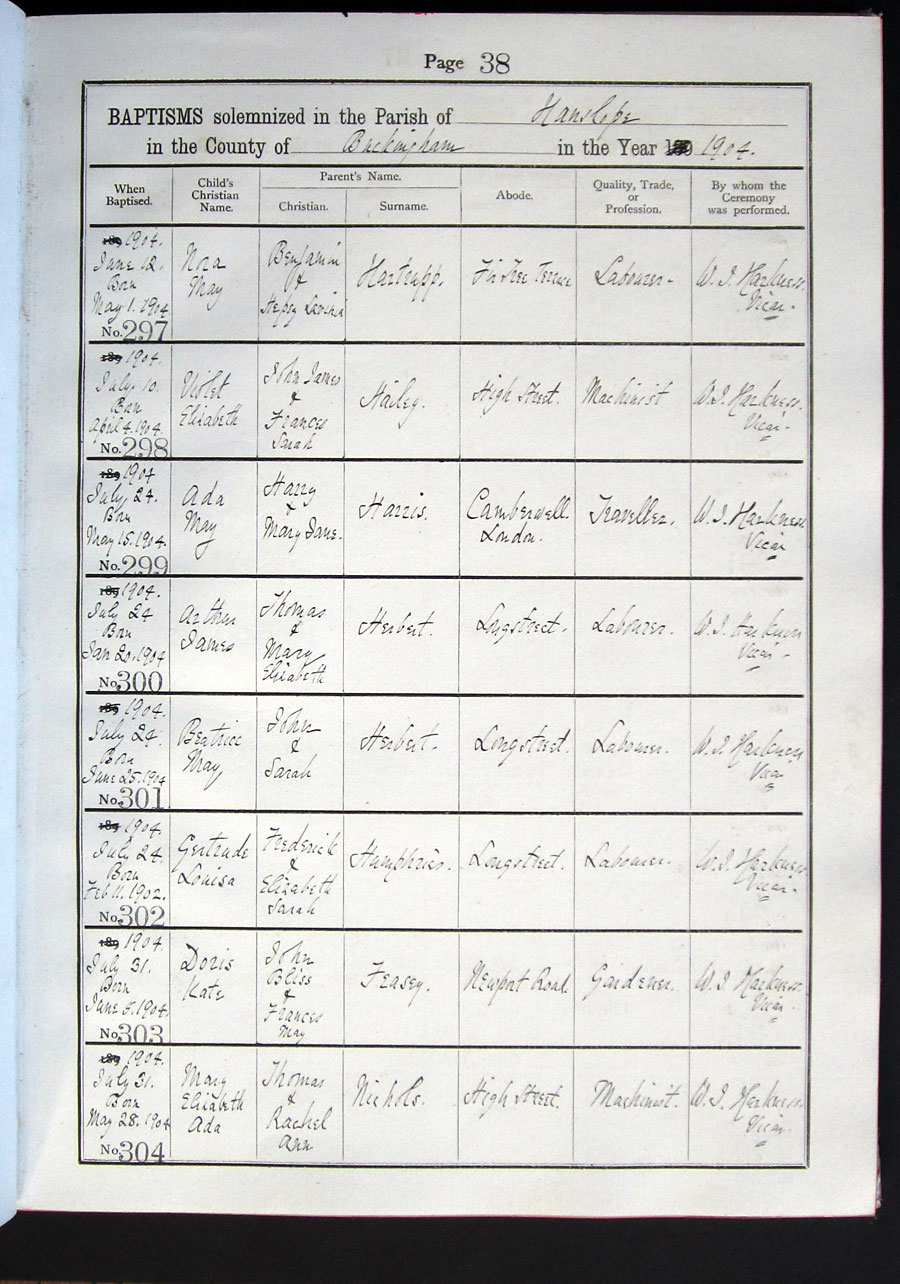 Page 38
BAPTISMS solemnized in the Parish of Hanslope
in the County of Buckingham in the Year 1904.
When Baptised.
Child's Christian Name.
Parent's Name.
Christian.
Surname.
Abode.
Quality, Trade, or Profession.
By whom the Ceremony was performed.
189 1904.
June 12.
Born
May 1. 1904
No. 297
Nora
May
Benjamin
&
Hepsy Lavinia
Hartrupp.
Fir Tree Terrace
Labourer-
W. J. Harkness.
Vicar-
189 1904.
July. 10.
Born
April 4. 1904.
No. 298
Violet
Elizabeth
John James
&
Frances
Sarah
Hailey.
High Street.
Machinist
W. J. Harkness.
Vicar-
189 1904
July. 24.
Born
May 15. 1904.
No. 299
Ada
May
Harry
&
Mary Jane.
Harris.
Camberwell.
London.
Traveller.
W. J. Harkness
Vicar
189 1904.
July 24
Born
Jan 20. 1904
No. 300
Arthur
James
Thomas
&
Mary
Elizabeth
Herbert.
Longstreet.
Labourer.
W. J. Harkness
Vicar-
189 1904.
July 24.
Born
June 25. 1904
No. 301
Beatrice
May
John
&
Sarah
Herbert.
Longstreet.
Labourer.
W. J. Harkness
Vicar
189 1904.
July 24.
Born
Feb 11. 1902.
No. 302
Gertrude
Louisa
Frederick
&
Elizabeth
Sarah
Humphries.
Longstreet.
Labourer.
W. J. Harkness
Vicar-
189 1904.
July 31.
Born
June 5. 1904.
No. 303
Doris
Kate
John
Bliss
&
Frances
May
Feasey.
Newport Road.
Gardener.
W. J. Harkness.
Vicar
189 1904.
July 31.
Born
May 28. 1904
No. 304
Mary
Elizabeth
Ada
Thomas
&
Rachel
Ann
Nichols.
High Street.
Machinist.
W. J. Harkness.
Vicar.